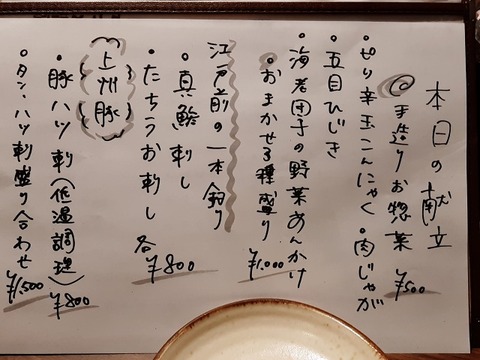 本日の献立
◎手造りお惣菜 ¥500
・ピリ辛玉こんにゃく ・肉じゃが
・五目ひじき
・海老団子の野菜あんかけ
・おまかせ3種盛り ¥1,000
江戸前の一本釣り
・真鯵刺し
・たちうお刺し 各¥800
上州豚
・豚ハツ刺(低温調理) ¥800
・タン、ハツ刺盛り合わせ ¥1,500